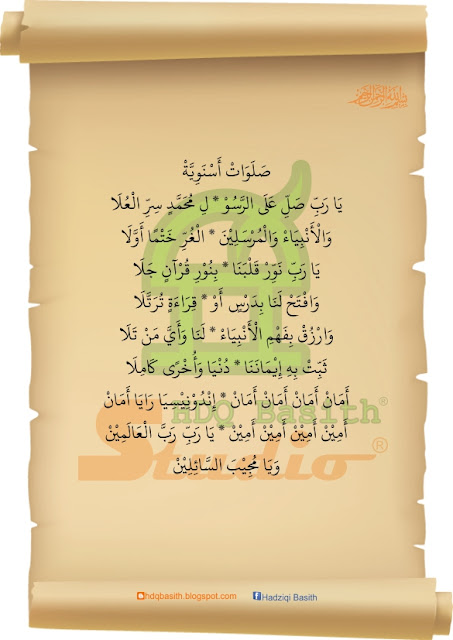 بسم الله الرحمن الرحيم
صَلَوَاتْ أَسْنَوِيَّةْ
يَا رَبِّ صَلِّ عَلَى الرَّسُوْ * لِ مُحَمَّدٍ سِرِّ الْعُلَا
وَالْأَنْبِيَاءْ وَالْمُرْسَلِيْنَ * الْغُرِّ خَتْمًا أَوَّلَا
يَا رَبِّ نَوِّرْ قَلْبَنَا * بِنُورِ قُرْآنٍ جَلَا
وَافْتَحْ لَنَا بِدَرْسٍ أَوْ * قِرَاءَةٍ تُرَتَّلَا
وَارْزُقْ بِفَهْمِ الْأَنْبِيَاءْ * لَنَا وَأَيَّ مَنْ تَلَا
ثَبِّتْ بِهِ إِيْمَانَنَا * دُنْيَا وَأُخْرَى كَامِلَا
أَمَانْ أَمَانْ أَمَانْ أَمَانْ * إِنْدُوْنِيْسِيَا رَايَا أَمَانْ
أَمِيْنْ أَمِيْنْ أَمِيْنْ أَمِيْنْ * يَا رَبِّ رَبَّ الْعَالَمِيْنْ
وَيَا مُجِيْبَ السَّائِلِيْنْ
HDQ Basith®
Studio®
hdqbasith.blogspot.com
Hadziqi Basith